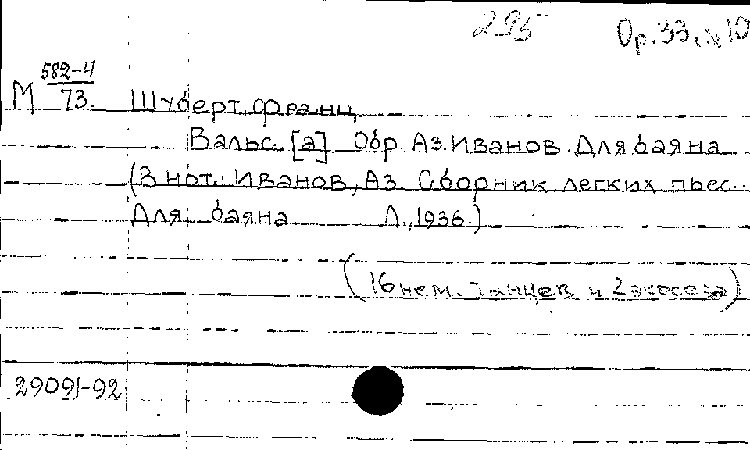 295 Op. 33, № 10
М 582-4/73 Шуберт Франц
Вальс. [а] Обр. Аз. Иванов. Для баяна
(В нот. Иванов, Аз. Сборник легких пьес
Для баяна Л., 1936.)
(16 нем. танцев и 2 экосеза)
29091-92